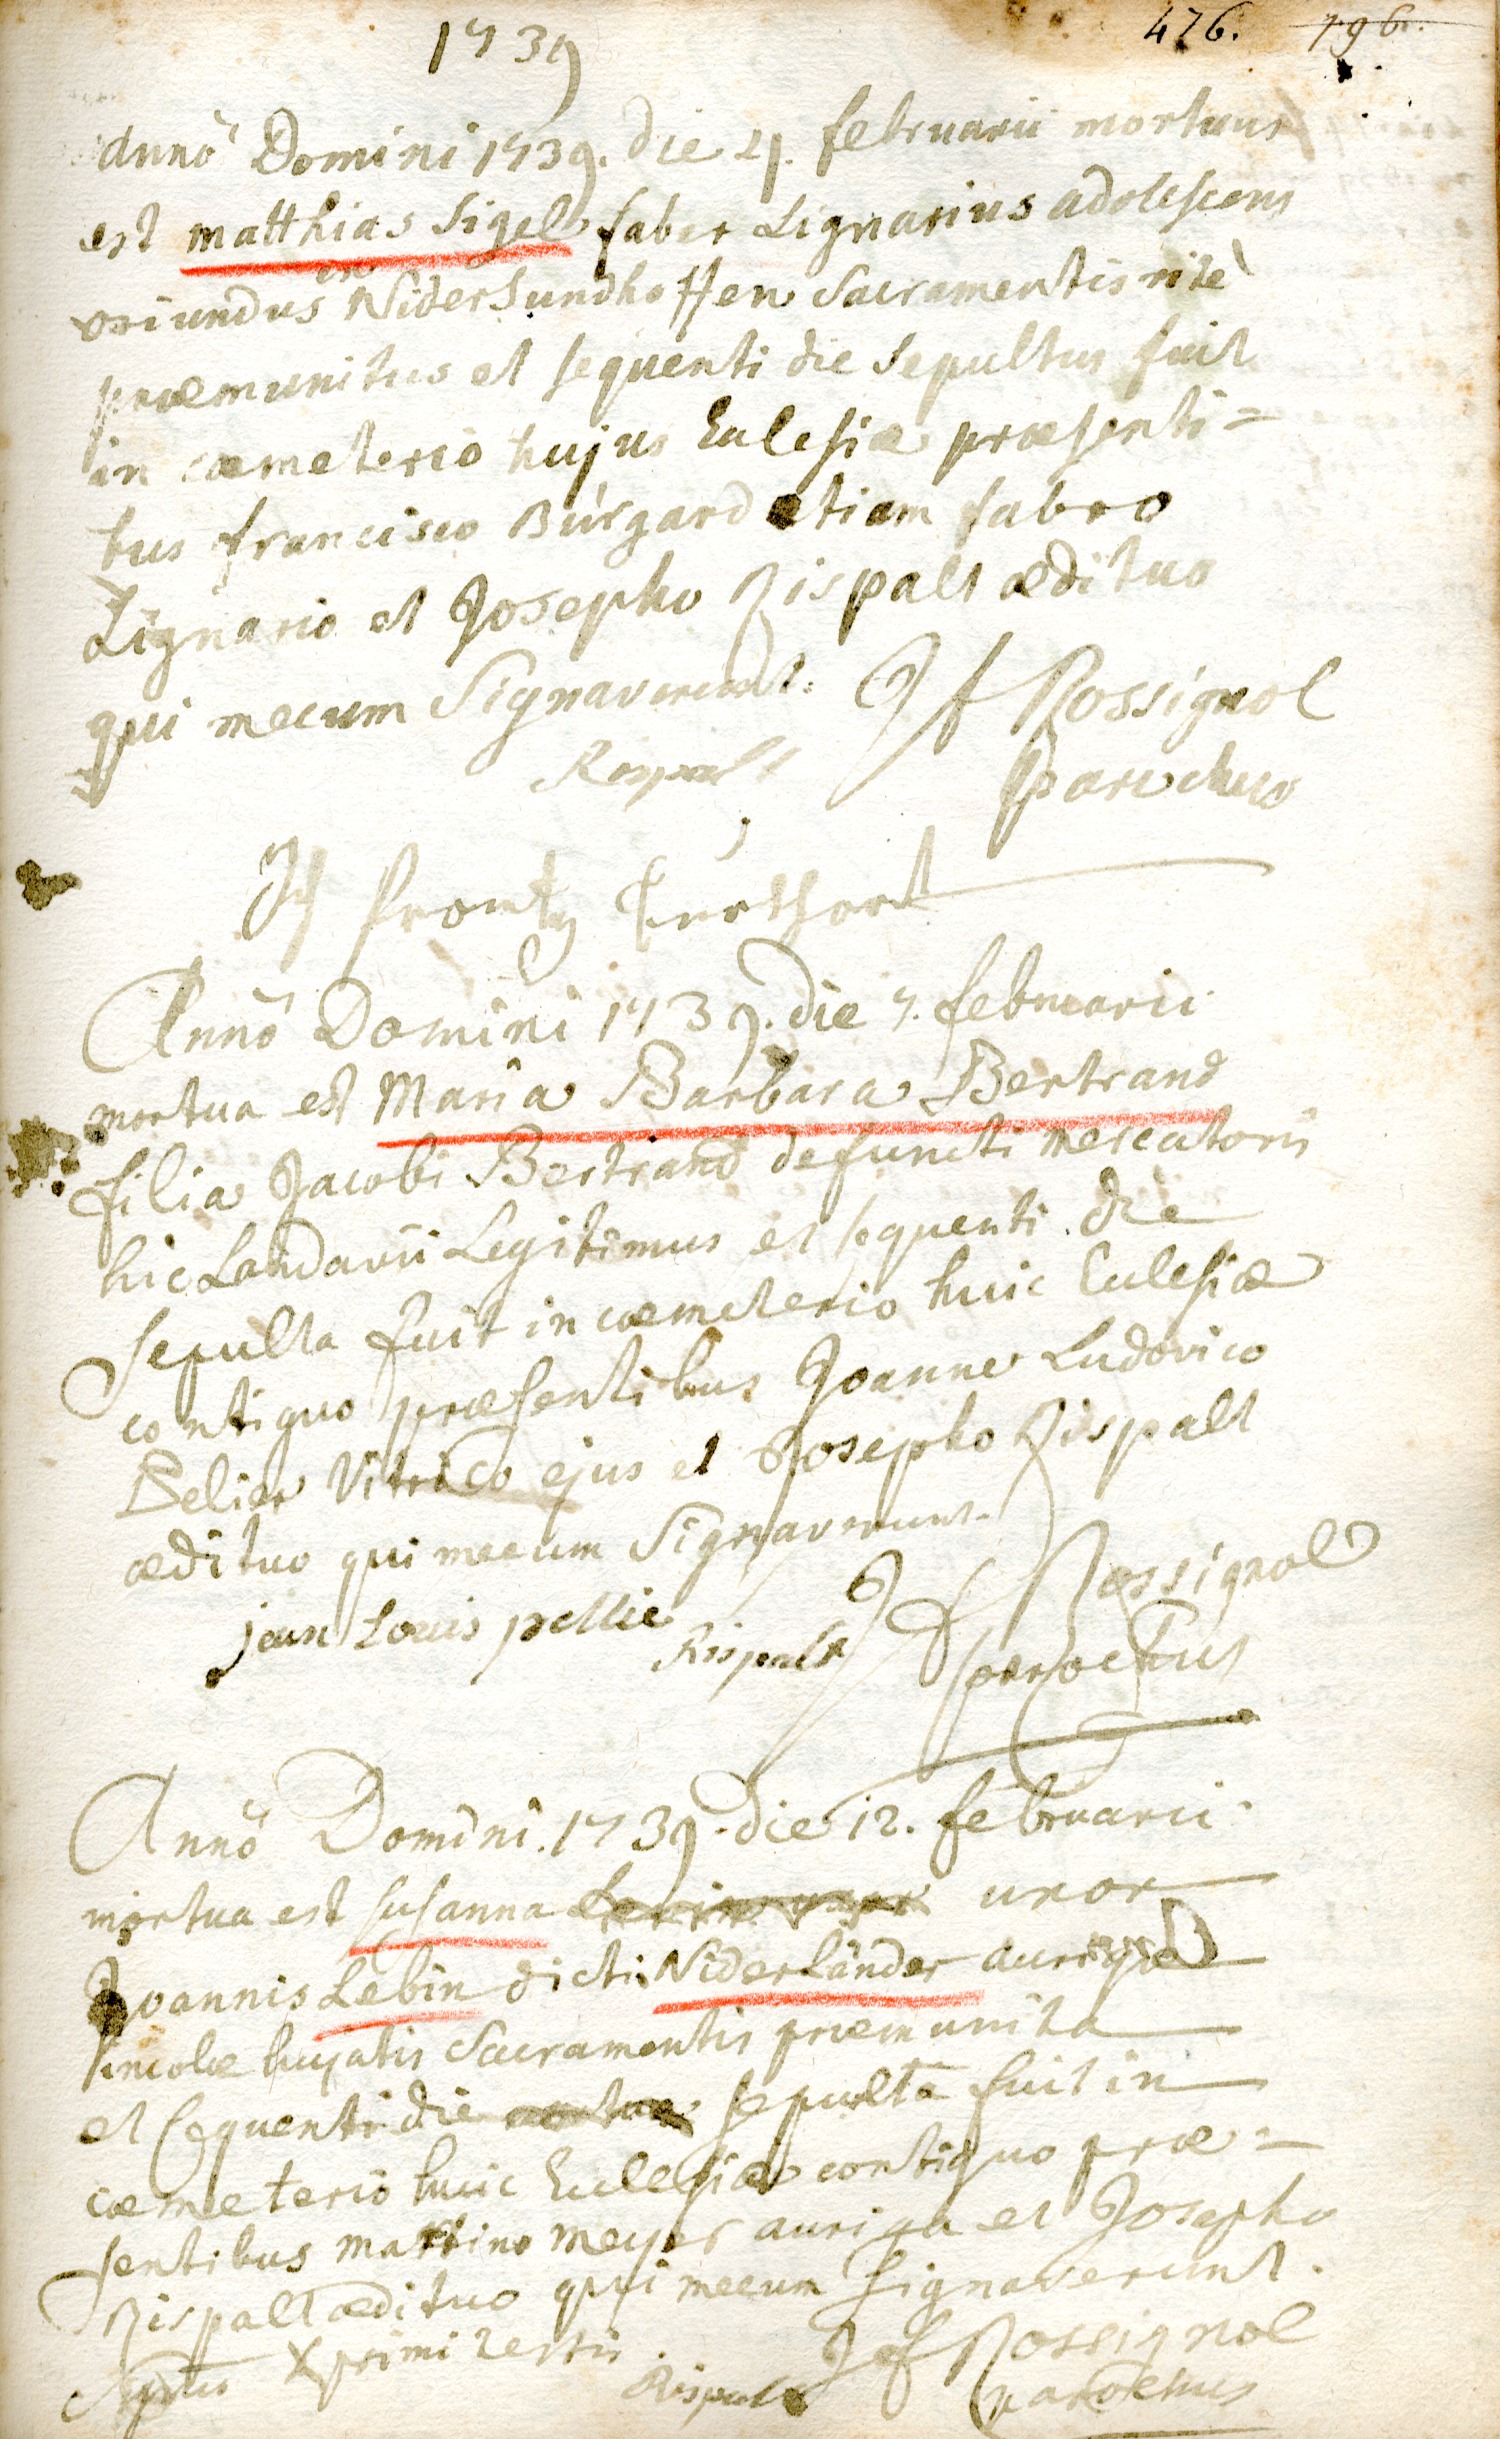 1739
476. 796.
Annô Domini 1739. die 4. februarii mortuus
est Matthias Sigel faber Lignarius adolescens
oriundus in NiderSundhoffen Sacramentis ritè
præmunitus et sequenti die Sepultus fuit
in cæmeterio hujus Eulesiæ præsenti=
bus francisco Bùrgard etiam fabro
Lignario et Josepho Rispalt ædituo
qui mecum Signaverunt. J f Rossignol
Rispalt parochus
Annô Domini 1739. die 7. februarii
mortua est Maria Barbara Bertrand
filia Jacobi Bertrand defuncti mercatoris
hic Landavii Legitimus et sequenti die
sepulta fuit in cæmeterio huic Eulesiæ
contiguo præsentibus Joanne Ludovico
Belier Vitrico ejus et Josepho Rispalt
ædituo qui mecum Signaverunt.
jean Louis pellie Rispalt J f Rossignol
parochus
Annô Domini 1739. die 12. februarii
mortua est susanna uxor
Joannis Lebin dicti Niderländer aurigæ
incolæ hujatis Sacramentis præmunita
et sequenti die sepulta fuit in
cæmeterio huic Eulesiæ contiguo præ=
sentibus Martino Meyer auriga et Josepho
Rispalt ædituo qui mecum signaverunt.
Signum X primi testis. Rispalt J f Rossignol
parochus